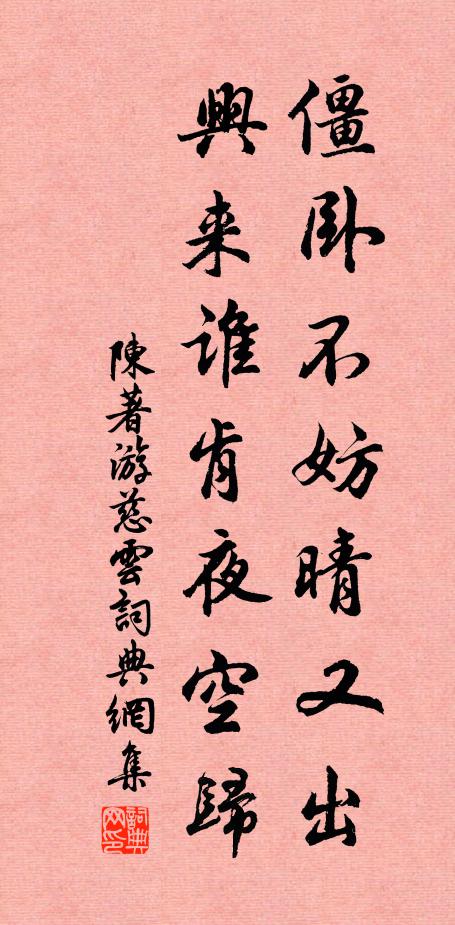 僵卧不妨晴又出
興来誰肯夜空歸
陳著游慈雲詞典網集
詞典网印